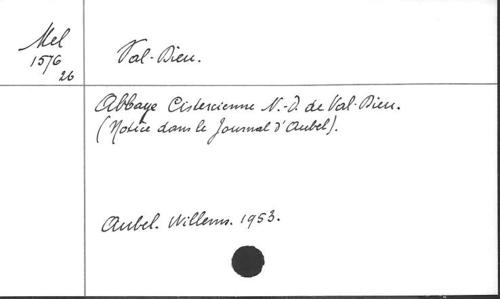 Mel
1576
26
Val-Dieu.
Abbaye Cistercienne N.-D. de Val-Dieu.
(Notice dans le Journal d'Aubel).
Aubel. Willems. 1953.